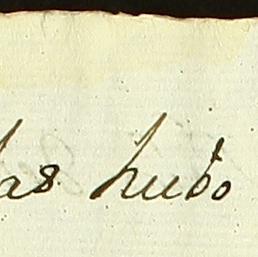 as hubo